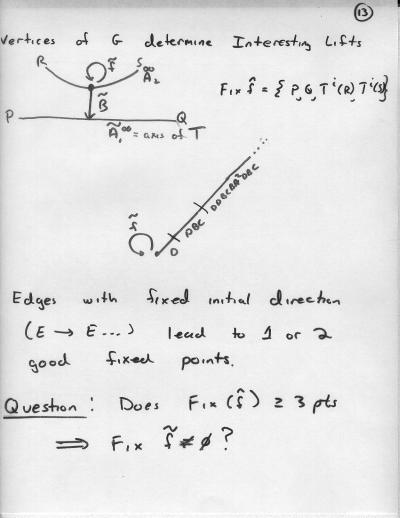 13
Vertices of G determine Interesting Lifts
R f̃ S
Ã₂^∞
B̃
Fix f̂ = { P, Q, T^i(R), T^i(S)}
P Q
Ã₁^∞ = axis of T
f̃ D DBC
Edges with fixed initial direction
(E → E...) lead to 1 or 2
good fixed points.
Question: Does Fix(f̂) ≥ 3 pts
⟹ Fix f̃ ≠ ∅?